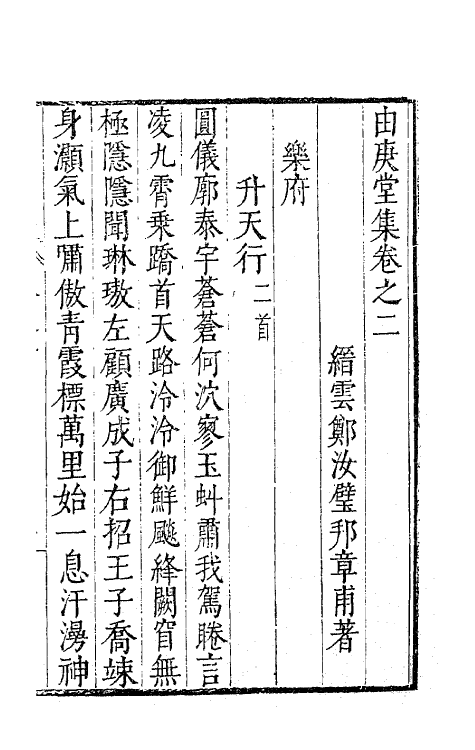 由庚堂集卷之二
縉雲鄭汝璧邦章甫著
樂府
升天行二首
圓儀廓泰宇蒼蒼何泬寥玉虯肅我駕睠言
凌九霄乘蹻首天路泠泠御鮮飈絳闕窅無
極隱隱聞琳璈左顧廣成子右招王子喬竦
身灝氣上嘯傲青霞標萬里始一息汗漫神